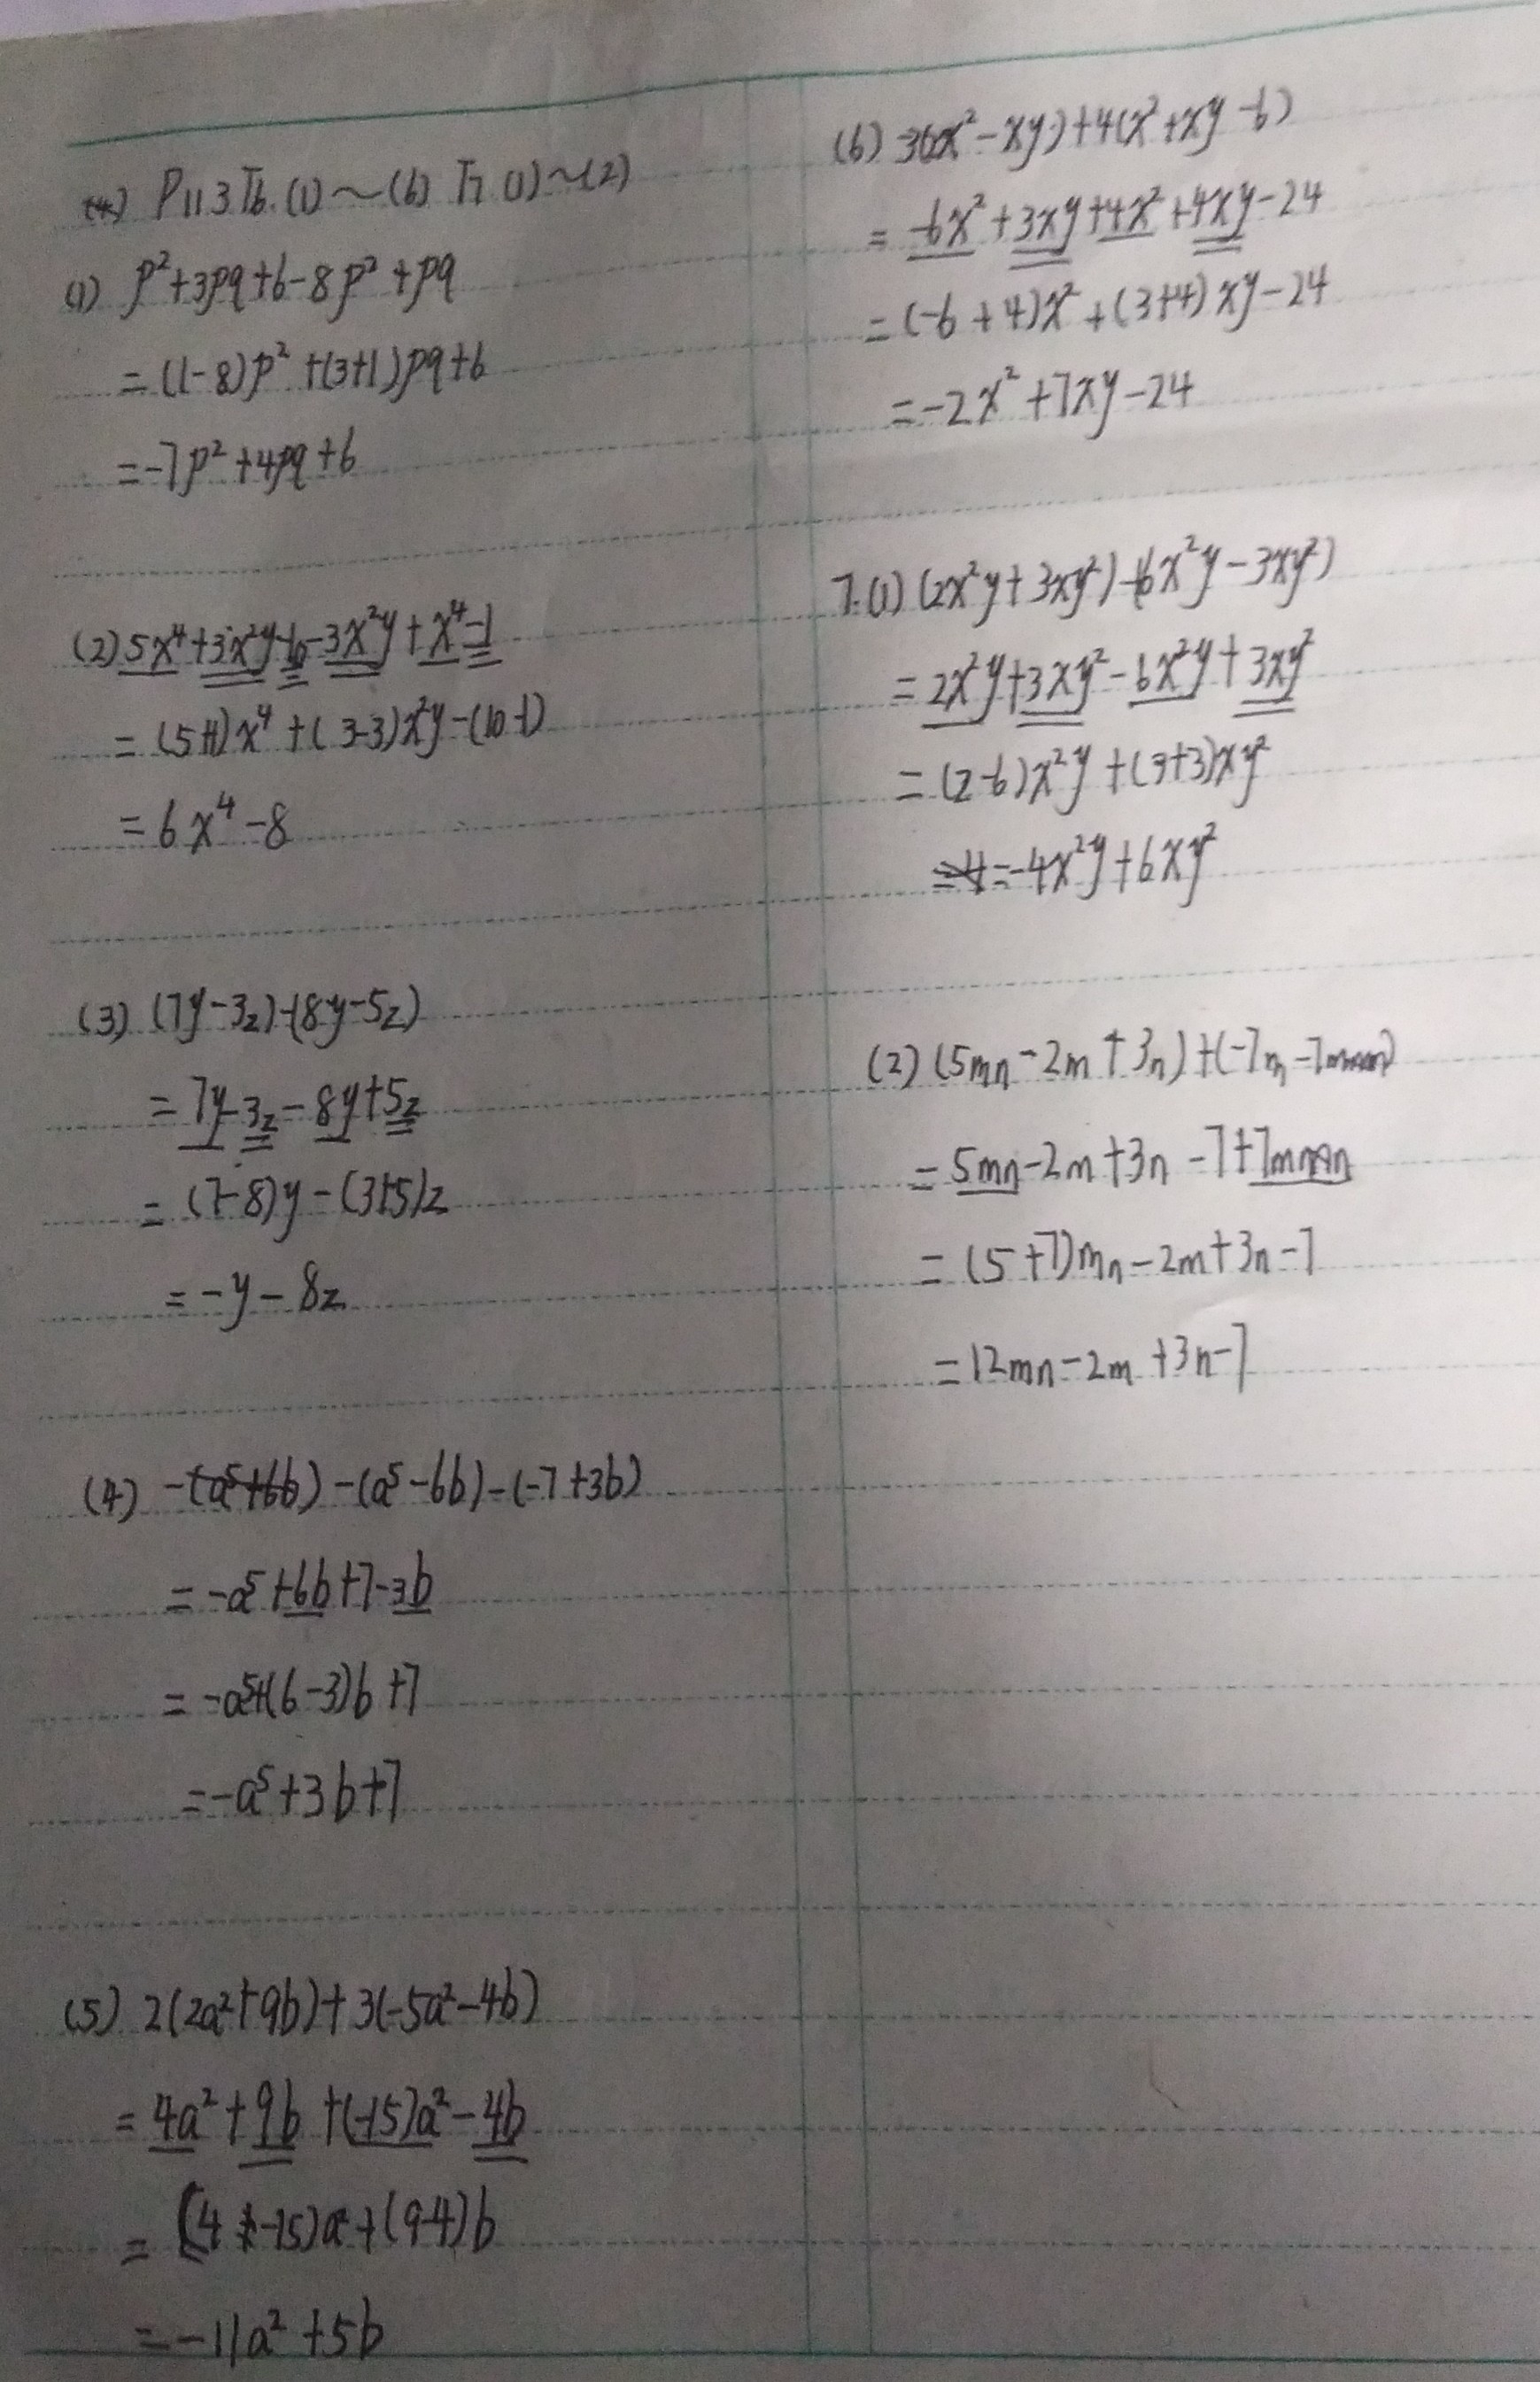 P113 T6.(1)~(6) T7 (1)~(2)
(1) p²+3pq+6-8p²+pq
=(1-8)p²+(3+1)pq+6
=-7p²+4pq+6
(2) 5x⁴+3x²y-10-3x²y+x⁴-1
=(5+1)x⁴+(3-3)x²y-(10-1)
=6x⁴-8
(3) (7y-3z)-(8y-5z)
=7y-3z-8y+5z
=(7-8)y-(3+5)z
=-y-8z
(4) -(a⁵+6b)-(a⁵-6b)-(-7+3b)
=-a⁵+6b+7-3b
=-a⁵+(6-3)b+7
=-a⁵+3b+7
(5) 2(2a²+9b)+3(-5a²-4b)
=4a²+9b+(-15)a²-4b
=(4+-15)a²+(9-4)b
=-11a²+5b
(6) -3(2x²-xy)+4(x²+xy-6)
=-6x²+3xy+4x²+4xy-24
=(-6+4)x²+(3+4)xy-24
=-2x²+7xy-24
7.(1) (2x²y+3xy²)-(6x²y-3xy²)
=2x²y+3xy²-6x²y+3xy²
=(2-6)x²y+(3+3)xy²
=-4x²y+6xy²
(2) (5mn-2m+3n)+(-7m-7mn)
=5mn-2m+3n-7+7mn
=(5+7)mn-2m+3n-7
=12mn-2m+3n-7